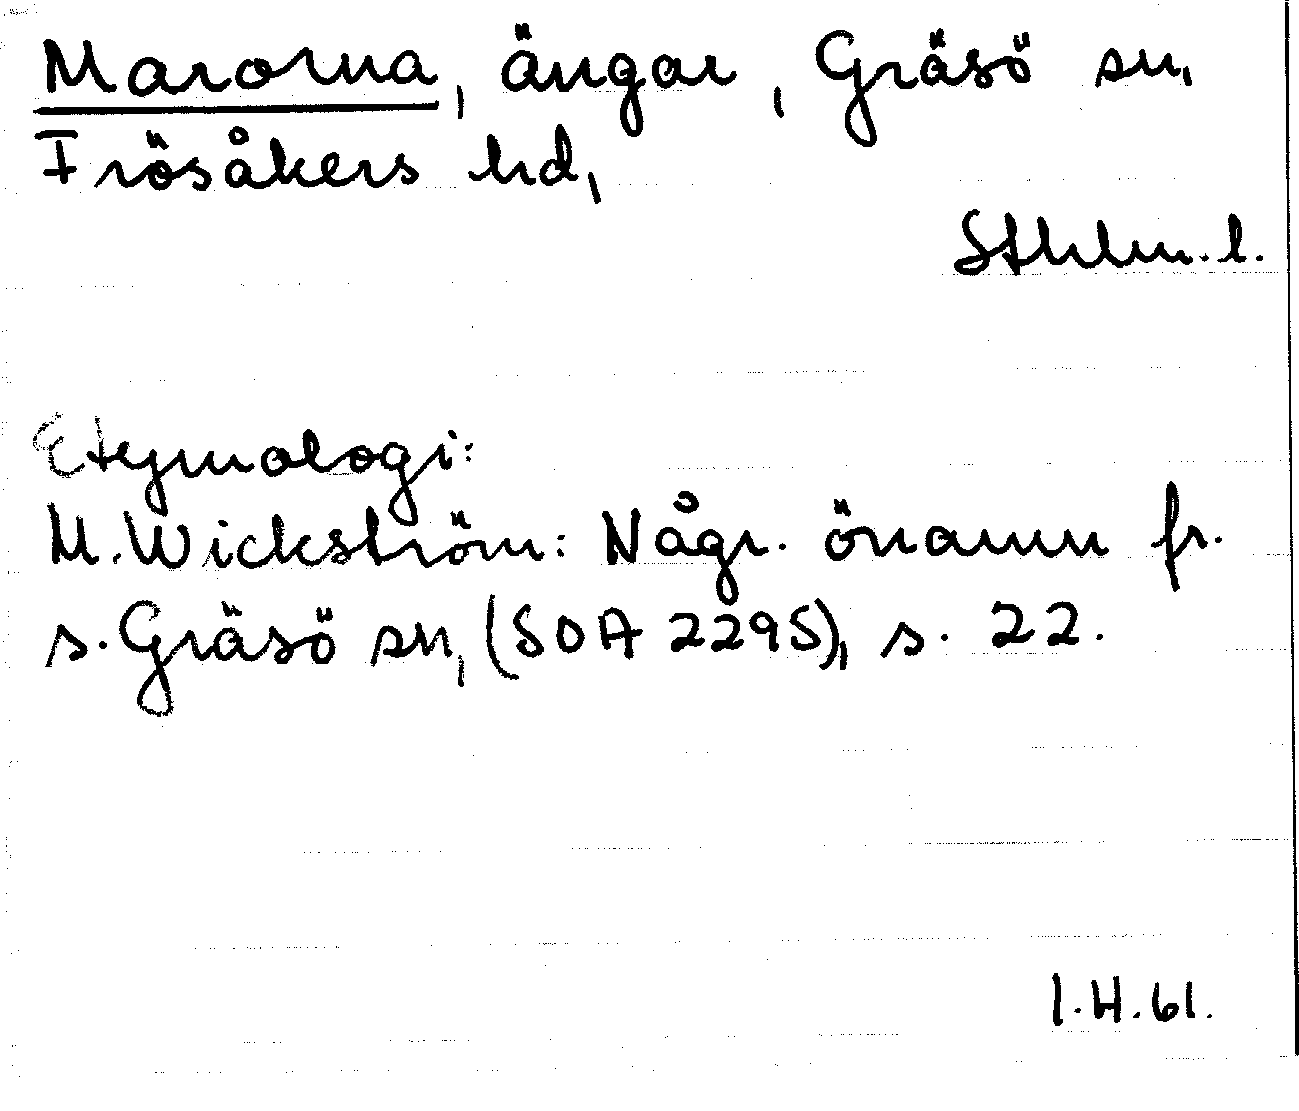 Marorna, ängar, Gräsö sn,
Frösåkers hd,
Sthlm. l.
Etymologi:
M. Wickström: Någr. önamn fr.
s. Gräsö sn, (SOA 2295), s. 22.
I.H.61.